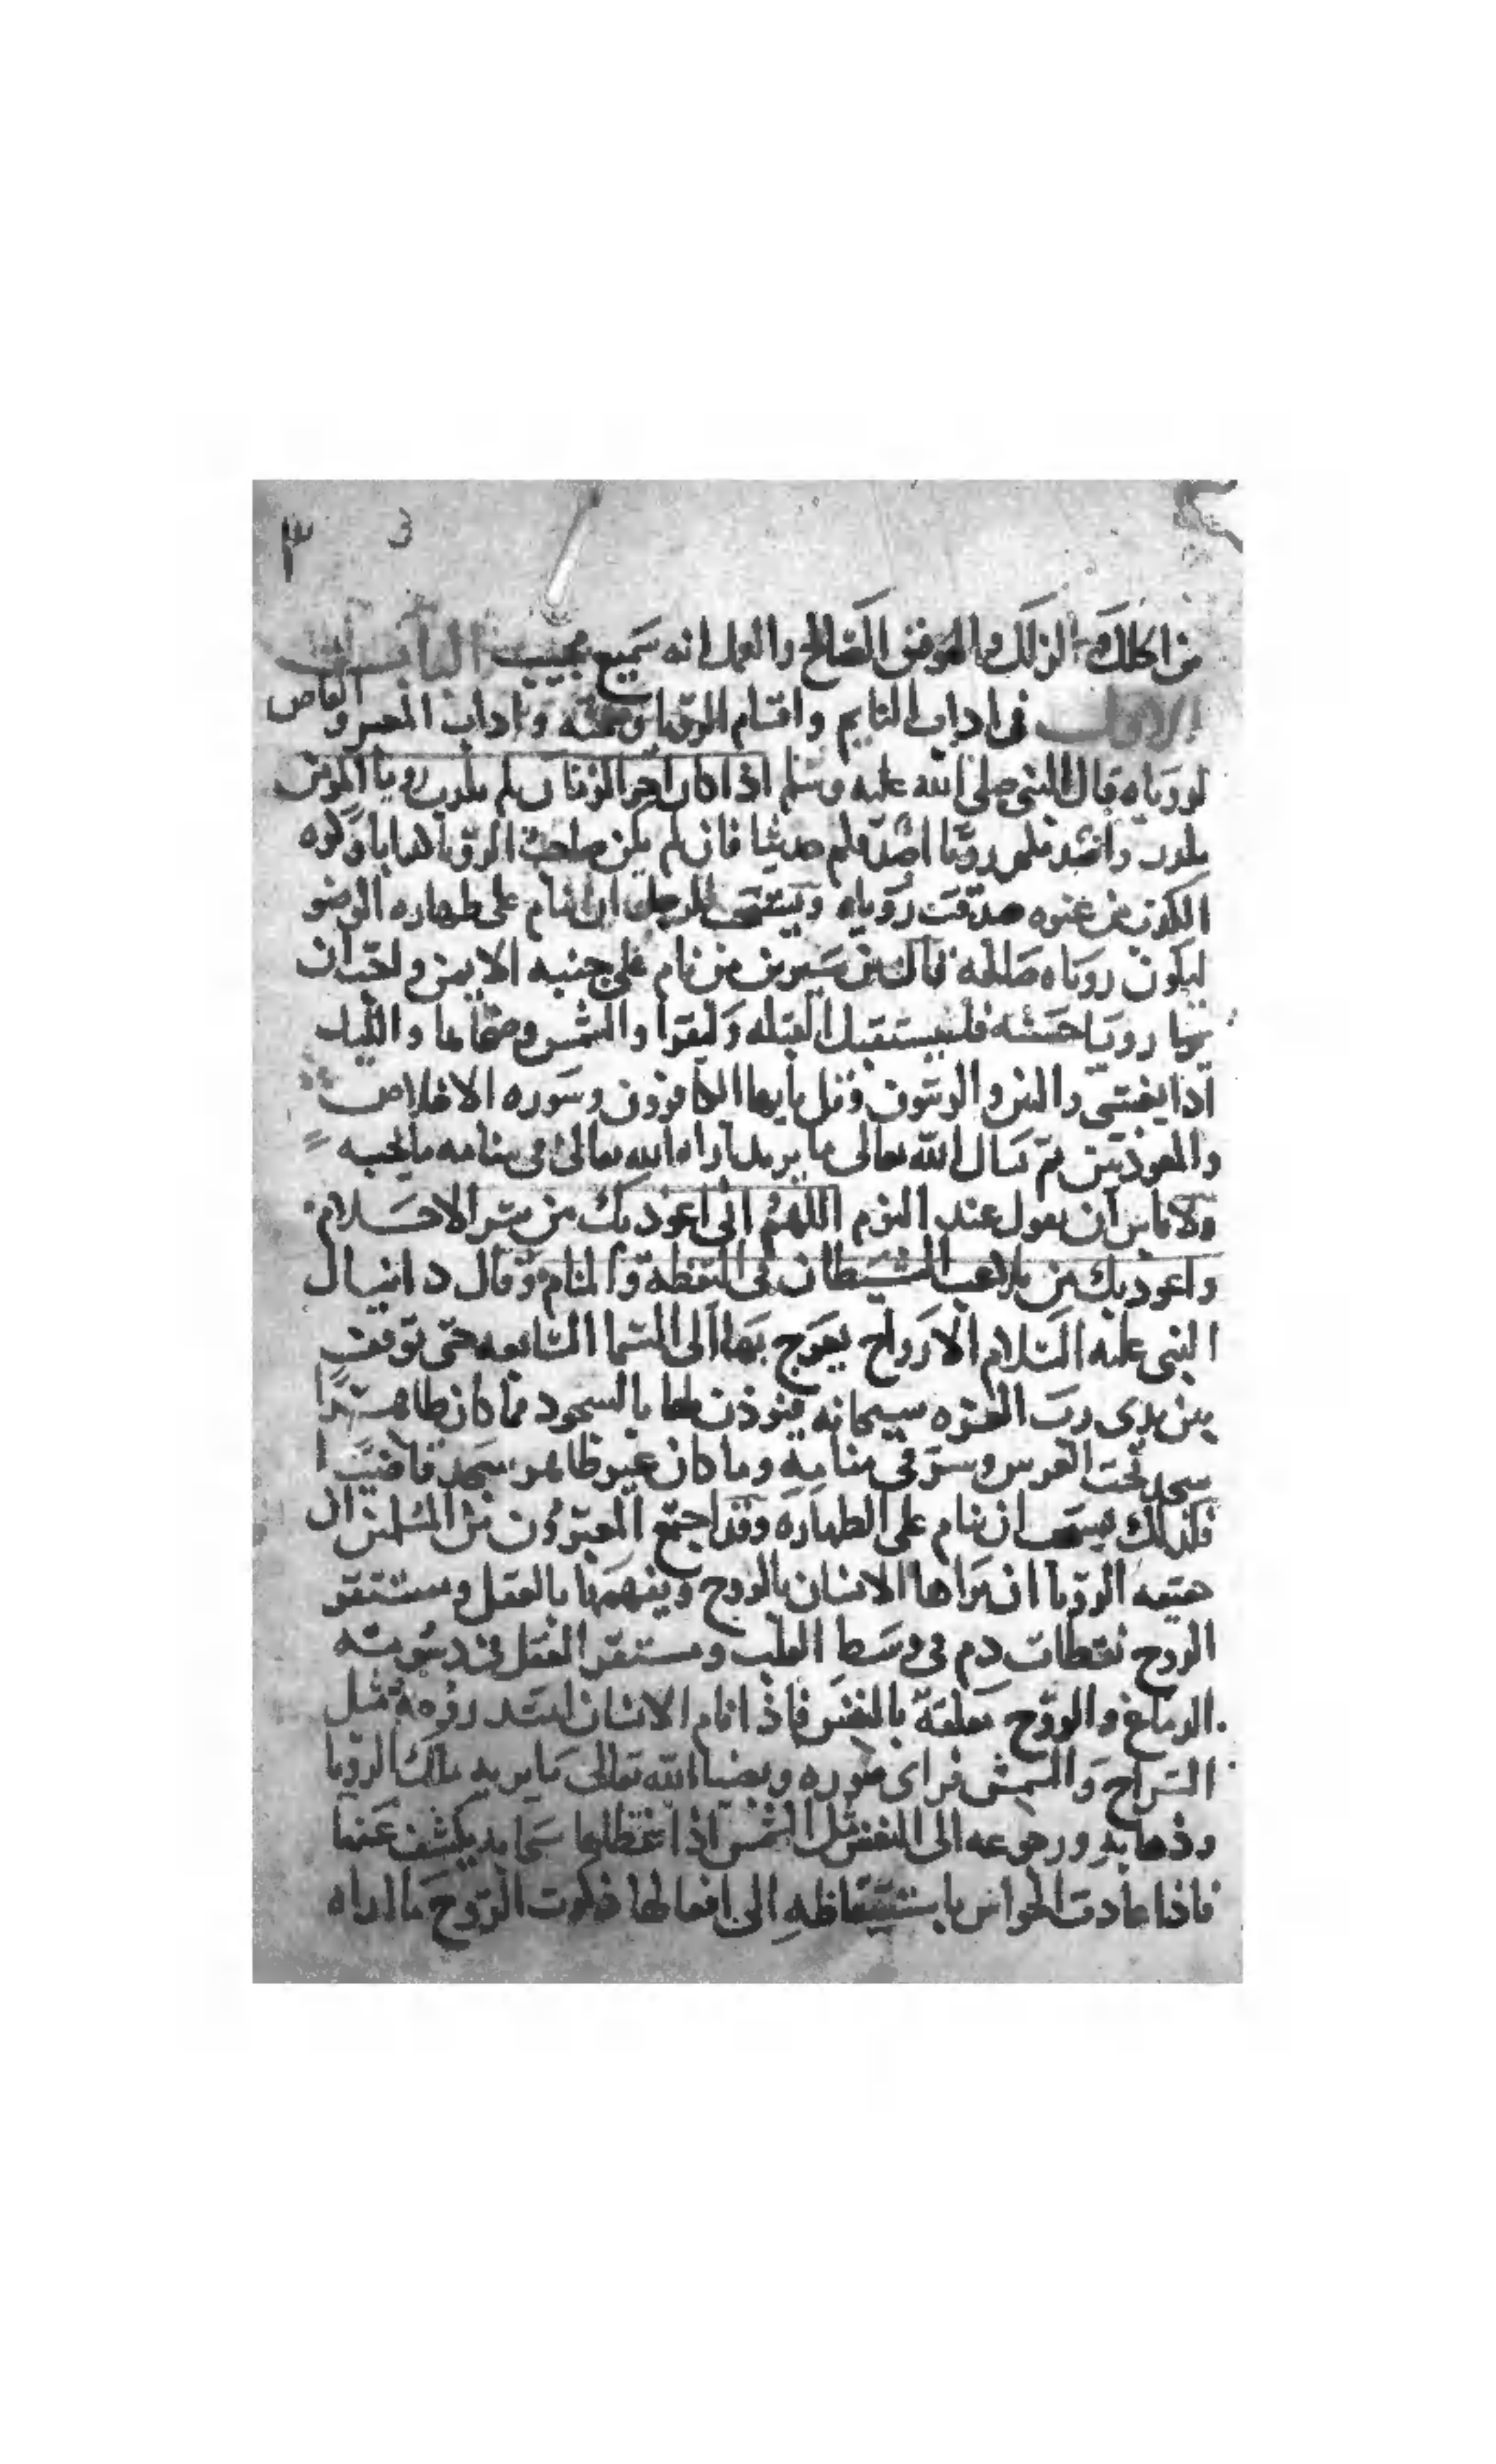 ٣
من الخلل والزلل والموفق الصالح والعمل انه سميع مجيب الباب
الاول فى اداب النايم واقسام الرويا وصحته واداب المعبر والقاص
لروياه قال النبى صلى الله عليه وسلم اذا كان اخر الزمان لم تكدب رويا المومن
تكدب واشدكم رويا اصدقكم حديثا فان لم يكن صاحب الرويا كدابا وكره
الكذب من غيره صدقت روياه ويستحب للرجل ان ينام على طهاره الوضو
ليكون روياه صالحه قال بن سيرين من نام على جنبه الايمن واحب ان
يرا رويا حسنه فليستقبل القبله وليقرا والشمس وضحاها والليل
اذا يغشى والتين والزيتون وقل يايها الكافرون وسوره الاخلاص
والمعوذتين ثم يسال الله تعالى ما يريد اراه الله تعالى فى منامه ما يحبه
ولا باس ان يقول عند النوم اللهم انى اعوذ بك من شر الاحلام
واعوذ بك من تلاعب الشيطان فى اليقظه والمنام وقال دانيال
النبى عليه السلام الارواح يعرج بها الى السما السابعه حتى توقف
بين يدى رب العزه سبحانه فيوذن لها بالسجود فما كان طاهرا
سجد تحت العرش وسر فى منامه وما كان غير طاهر سجد قاصيا
فلذلك يستحب ان ينام على الطهاره وقد اجتمع المعبرون من المسلمين ان
حقيقه الرويا ان يراها الانسان بالروح ويفهمها بالعقل ومستقر
الروح نقطات دم فى وسط القلب ومستقر العقل فى دسومته
الدماغ والروح معلقة بالنفس فاذا نام الانسان امتد روحه مثل
السراج والشمس فراى بنوره وبضيا الله تعالى ما يريه ملك الرويا
وذهابه ورجوعه الى النفس مثل الشمس اذا غطاها سحاب يكشف عنها
فاذا عادت الحواس باستيقاظه الى افعالها ذكرت الروح ما اراه